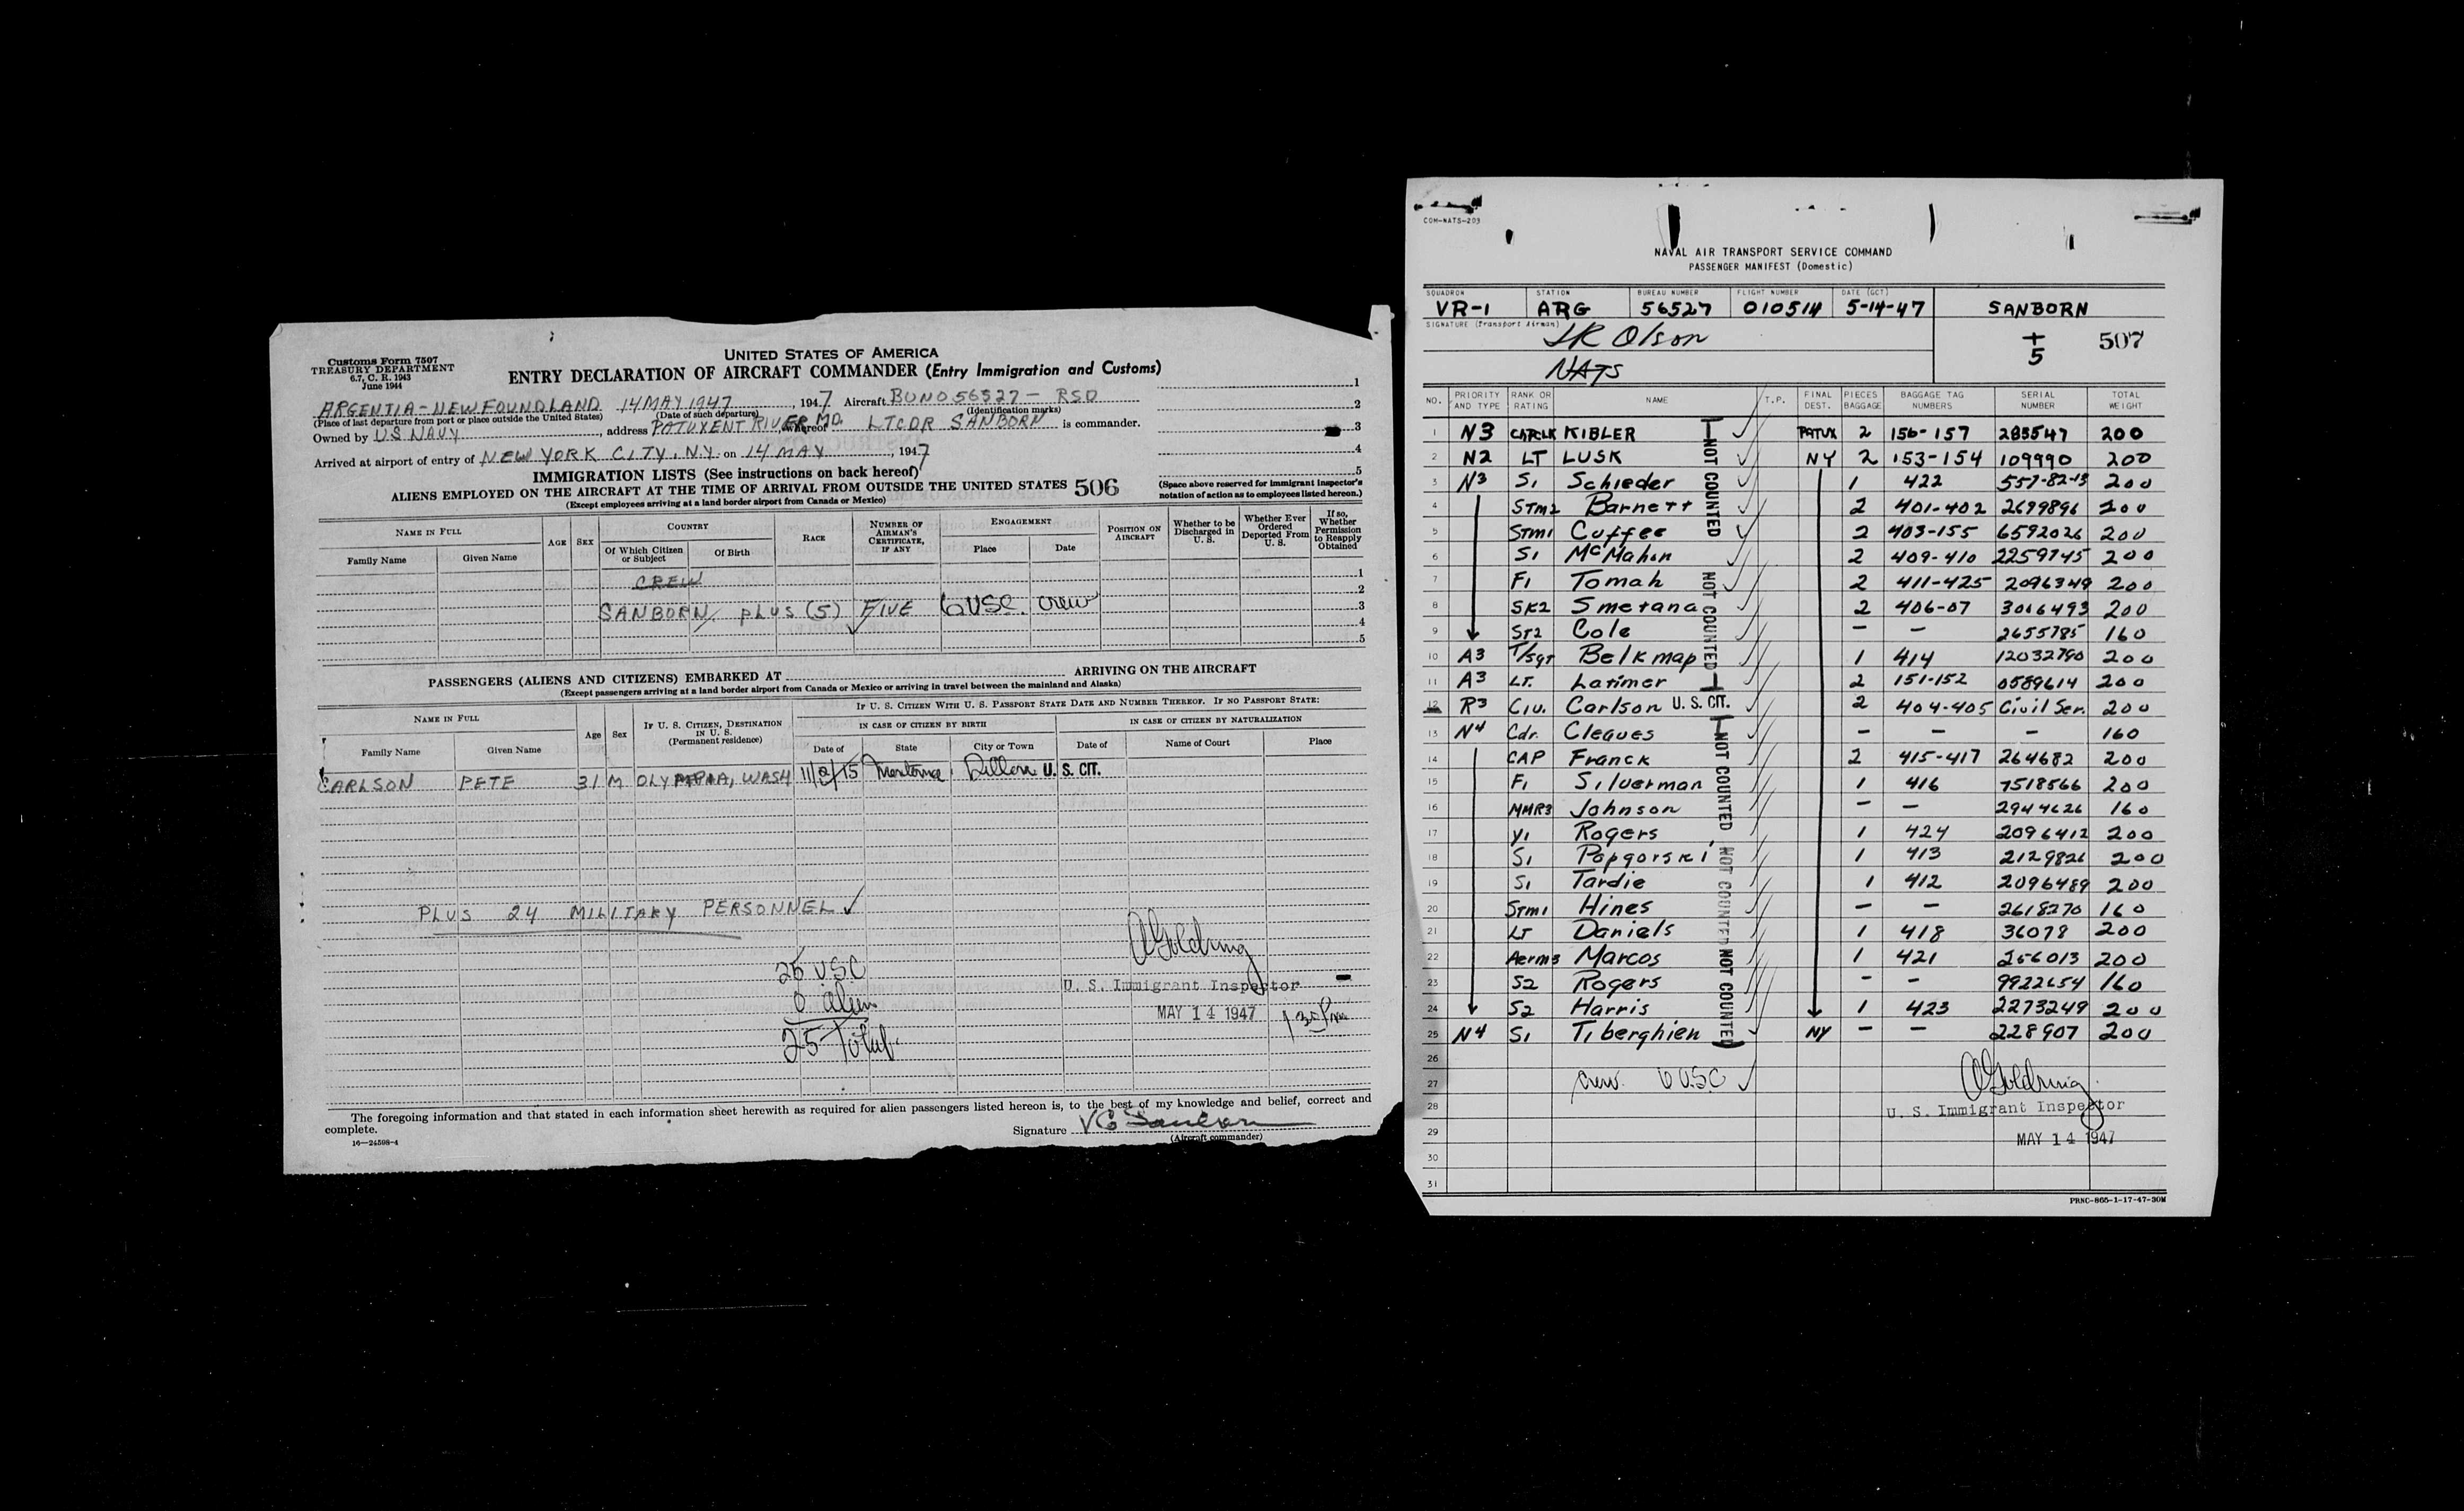 Customs Form 7507
TREASURY DEPARTMENT
6.7, C. R. 1943
June 1944
UNITED STATES OF AMERICA
ENTRY DECLARATION OF AIRCRAFT COMMANDER (Entry Immigration and Customs)
ARGENTIA-NEWFOUNDLAND 14 MAY 1947, 1947 Aircraft BUNO 56527 - R5D
(Place of last departure from port or place outside the United States) (Date of such departure) (Identification marks)
Owned by US NAVY, address PATUXENT RIVER MD., whereof LTCDR SANBORN is commander.
Arrived at airport of entry of NEW YORK CITY, N.Y. on 14 MAY, 1947
1
2
3
4
5
IMMIGRATION LISTS (See instructions on back hereof)
ALIENS EMPLOYED ON THE AIRCRAFT AT THE TIME OF ARRIVAL FROM OUTSIDE THE UNITED STATES 506
(Except employees arriving at a land border airport from Canada or Mexico)
(Space above reserved for immigrant inspector's notation of action as to employees listed hereon.)
NAME IN FULL AGE SEX COUNTRY RACE NUMBER OF AIRMAN'S CERTIFICATE, IF ANY ENGAGEMENT POSITION ON AIRCRAFT Whether to be Discharged in U. S. Whether Ever Ordered Deported From U. S. If so, Whether Permission to Reapply Obtained
Family Name Given Name Of Which Citizen or Subject Of Birth Place Date
CREW 1
2
SANBORN PLUS (5) FIVE 6 USC. crew 3
4
5
PASSENGERS (ALIENS AND CITIZENS) EMBARKED AT ARRIVING ON THE AIRCRAFT
(Except passengers arriving at a land border airport from Canada or Mexico or arriving in travel between the mainland and Alaska)
NAME IN FULL Age Sex IF U. S. CITIZEN, DESTINATION IN U. S. (Permanent residence) IF U. S. CITIZEN WITH U. S. PASSPORT STATE DATE AND NUMBER THEREOF. IF NO PASSPORT STATE:
IN CASE OF CITIZEN BY BIRTH IN CASE OF CITIZEN BY NATURALIZATION
Family Name Given Name Date of State City or Town Date of Name of Court Place
CARLSON PETE 31 M OLYMPIA, WASH 11/8/15 Montana Dillon U. S. CIT.
PLUS 24 MILITARY PERSONNEL
25 USC
0 alien
25 Total
AGoldring
U. S. Immigrant Inspector
MAY 14 1947 1 35 PM
The foregoing information and that stated in each information sheet herewith as required for alien passengers listed hereon is, to the best of my knowledge and belief, correct and
complete.
Signature VG Sanborn
16—24598-4 (Aircraft commander)
COM-NATS-203
NAVAL AIR TRANSPORT SERVICE COMMAND
PASSENGER MANIFEST (Domestic)
SQUADRON STATION BUREAU NUMBER FLIGHT NUMBER DATE (GCT)
VR-1 ARG 56527 010514 5-14-47 SANBORN
SIGNATURE (Transport Airman)
JR Olson + 5 507
NATS
NO. PRIORITY AND TYPE RANK OR RATING NAME T.P. FINAL DEST. PIECES BAGGAGE BAGGAGE TAG NUMBERS SERIAL NUMBER TOTAL WEIGHT
1 N3 CAPCLK KIBLER PATUX 2 156-157 285547 200
2 N2 LT LUSK NY 2 153-154 109990 200
3 N3 S1 Schieder 1 422 557-82-13 200
4 STM2 Barnett 2 401-402 2699896 200
5 STM1 Cuffee 2 403-155 6592026 200
6 S1 McMahon 2 409-410 2259745 200
7 F1 Tomah 2 411-425 2096349 200
8 SK2 Smetana 2 406-07 3016493 200
9 ST2 Cole - - 2655785 160
10 A3 T/Sgt Belkmap 1 414 12032790 200
11 A3 LT. Latimer 2 151-152 0589614 200
12 R3 Civ. Carlson U. S. CIT. 2 404-405 Civil Ser. 200
13 N4 Cdr. Cleaves - - - 160
14 CAP Franck 2 415-417 264682 200
15 F1 Silverman 1 416 7518566 200
16 MMR3 Johnson - - 2944626 160
17 Y1 Rogers 1 424 2096412 200
18 S1 Popgorski 1 413 2129826 200
19 S1 Tardie 1 412 2096489 200
20 STM1 Hines - - 2618270 160
21 LT Daniels 1 418 36078 200
22 Aerm3 Marcos 1 421 256013 200
23 S2 Rogers - - 9922654 160
24 S2 Harris 1 423 2273249 200
25 N4 S1 Tiberghien NY - - 228907 200
NOT COUNTED
NOT COUNTED
NOT COUNTED
NOT COUNTED
NOT COUNTED
26
27 crew 6 USC
28
29
30
31
AGoldring
U. S. Immigrant Inspector
MAY 14 1947
PRNC-865-1-17-47-30M